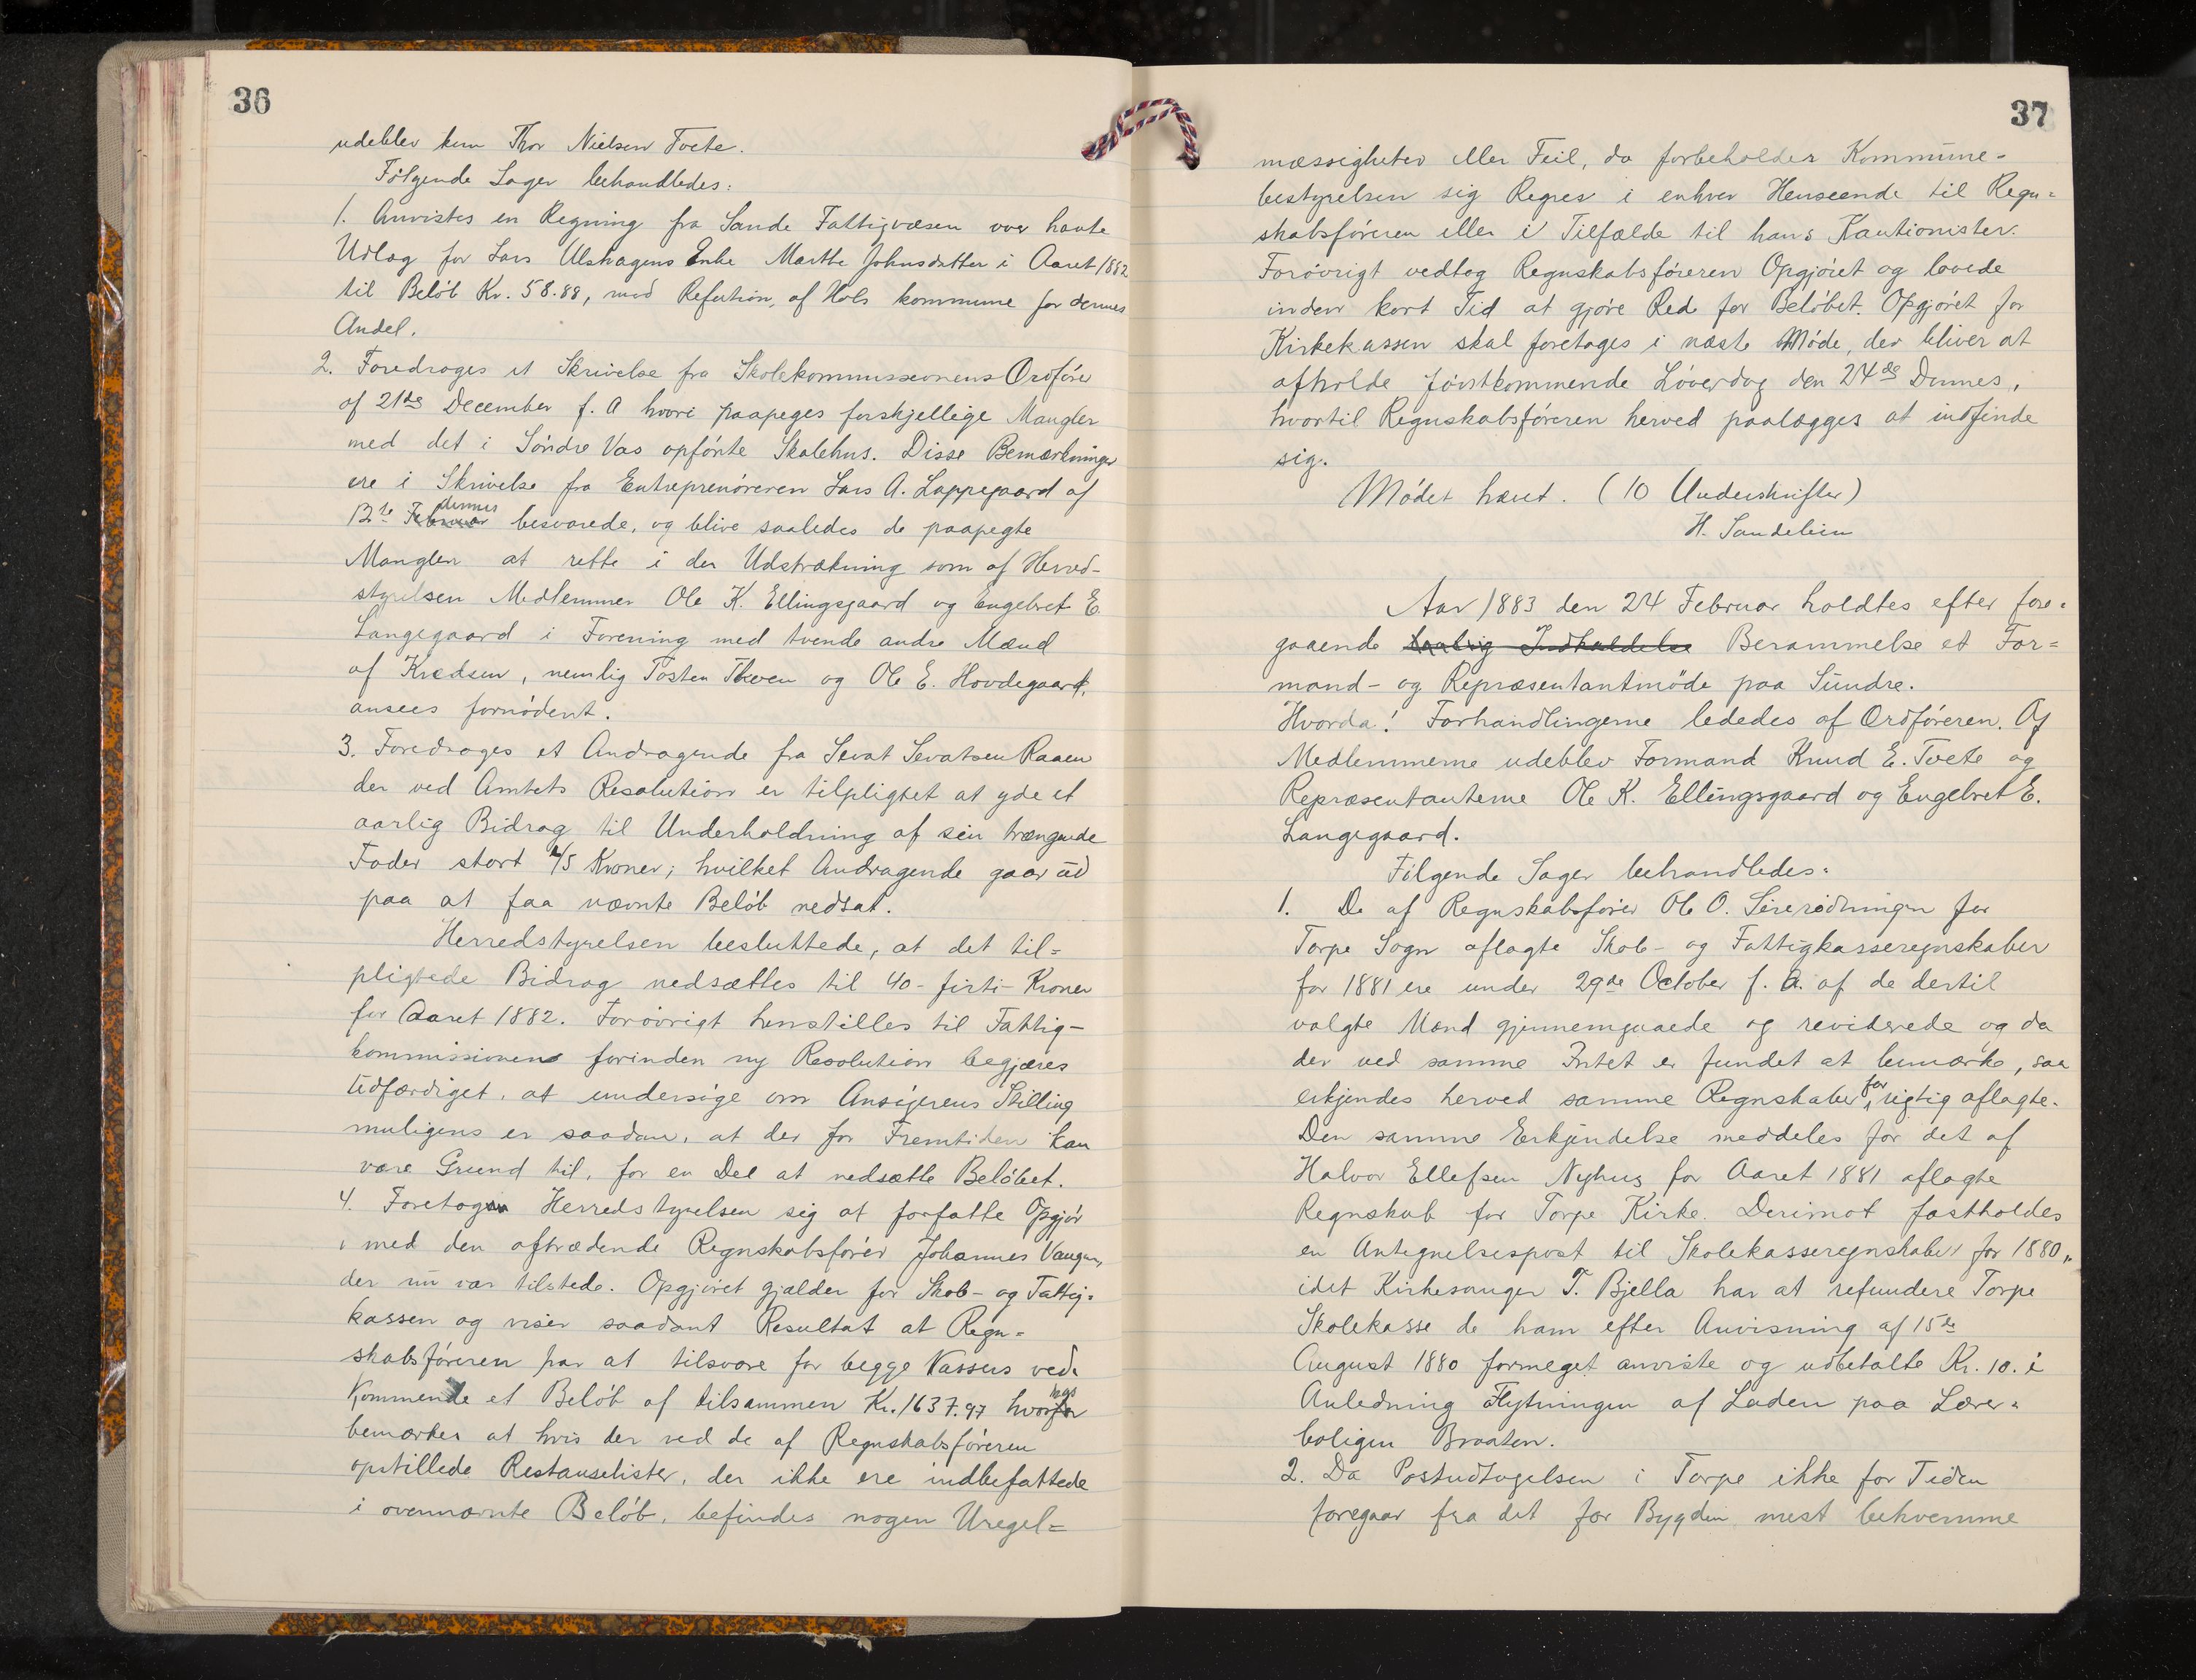 36
udeblev kun Thor Nielsen Tvete.
Følgende Sager behandledes:
1. Anvistes en Regning fra Sande Fattigvæsen over havte
Udlæg for Lars Ulshagens Enke Marthe Johnsdatter i Aaret 1882
til Beløb Kr. 58.88, mod Refution af Hols kommune for dennes
Andel.
2. Foredroges et Skrivelse fra Skolekommissionens Ordfører
af 21de December f. A hvori paapeges forskjellige Mangler
med det i Søndre Vas opførte Skolehus. Disse Bemærkninger
ere i Skrivelse fra Entreprenøreren Lars A. Lappegaard af
13te Februar dennes besvarede, og blive saaledes de paapegte
Mangler at rette i den Udstrækning som af Herred-
styrelsen Medlemmer Ole K. Ellingsgaard og Engebret E.
Langegaard i Forening med tvende andre Mænd
af Kredsen, nemlig Tosten Thoen og Ole E. Hovdegaard,
ansees fornødent.
3. Foredroges et Andragende fra Sevat Sevatsen Raaen
der ved Amtets Resolution er tilpligtet at yde et
aarlig Bidrag til Underholdning af sin trængende
Fader stort 45 Kroner; hvilket Andragende gaar ud
paa at faa nævnte Beløb nedsat.
Herredstyrelsen besluttede, at det til=
pligtede Bidrag nedsættes til 40 - firti - Kroner
for Aaret 1882. Forøvrigt henstilles til Fattig-
kommissionen forinden ny Resolution begjæres
udfærdiget, at undersøge om Ansøgerens Stilling
muligens er saadan, at der for Fremtiden kan
være Grund til, for en Del at nedsætte Beløbet.
4. Foretog Herredstyrelsen sig at forfatte Opgjør
med den aftrædende Regnskabsfører Johannes Vangen,
der nu var tilstede. Opgjøret gjælder for Skole- og Fattig=
kassen og viser saadant Resultat at Regn=
skabsføreren har at tilsvare for begge Kassers ved=
kommende et Beløb af tilsammen Kr. 1637.97 hvorhos
bemærkes at hvis der ved de af Regnskabsføreren
opstillede Restanselister, der ikke ere indbefattede
i ovennævnte Beløb, befindes nogen Uregel=
37
mæssigheter eller Feil, da forbeholder Kommune=
bestyrelsen sig Regres i enhver Henseende til Regn=
skabsføreren eller i Tilfælde til hans Kautionister.
Forøvrigt vedtog Regnskabsføreren Opgjøret og lovede
inden kort Tid at gjøre Red for Beløbet. Opgjøret for
Kirkekassen skal foretages i næste Møde, der bliver at
afholde førstkommende Løverdag den 24de Dennes,
hvortil Regnskabsføreren herved paalægges at indfinde
sig.
Mødet hævet. (10 Underskrifter)
H. Sandelien
Aar 1883 den 24 Februar holdtes efter fore=
gaaende lovlig Indkaldelse Berammelse et For=
mand- og Repræsentantmøde paa Sundre.
Hvorda! Forhandlingerne lededes af Ordføreren. Af
Medlemmerne udeblev Formand Knud E. Tvete og
Repræsentanterne Ole K. Ellingsgaard og Engebret E.
Langegaard.
Følgende Sager behandledes:
1. De af Regnskabsfører Ole O. for
Torpe Sogn aflagte Skole- og Fattigkasseregnskaber
for 1881 ere under 29de October f. A. af de dertil
valgte Mænd gjennemgaaede og reviderede og da
der ved samme Intet er fundet at bemærke, saa
erkjendes herved samme Regnskaber for rigtig aflagte.
Den samme Erkjendelse meddeles for det af
Halvor Ellefsen Nyhus for Aaret 1881 aflagte
Regnskab for Torpe Kirke. Derimot fastholdes
en Antegnelsespost til Skolekasseregnskabet for 1880,
idet Kirkesanger T. Bjella har at refundere Torpe
Skolekasse de ham efter Anvisning af 15de
August 1880 formeget anviste og udbetalte Kr. 10. i
Anledning Flytningen af Laden paa Lærer=
boligen Braaten.
2. Da Postudtagelsen i Torpe ikke for Tiden
foregaar fra det for Bygden mest bekvemme